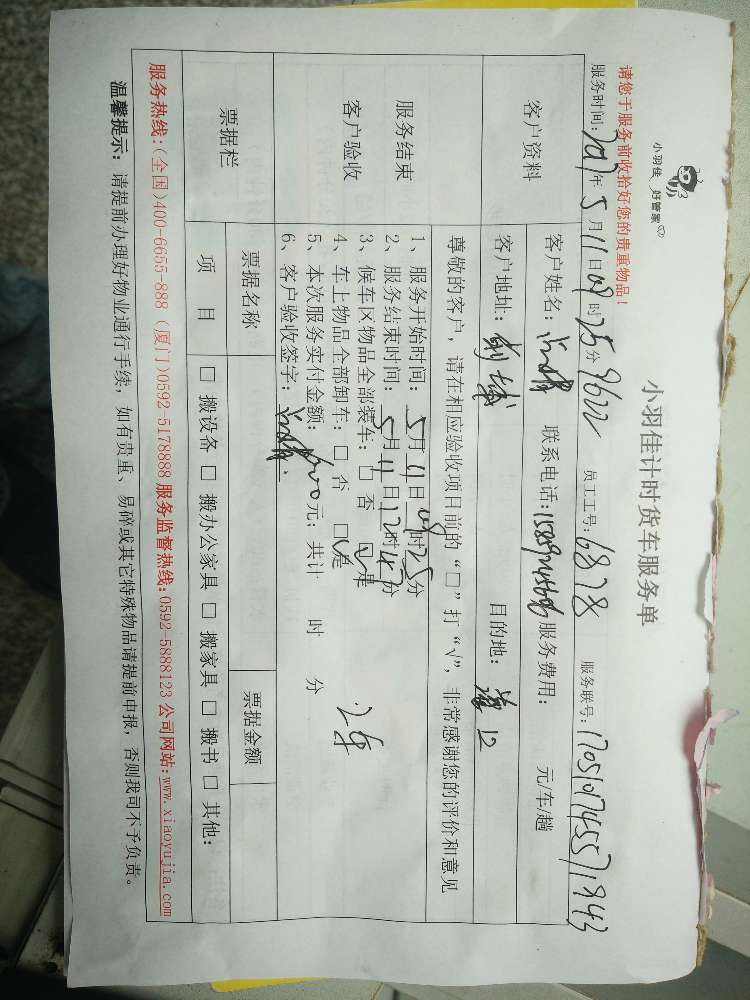 小羽佳 好管家
小羽佳计时货车服务单
请您于服务前收拾好您的贵重物品!
服务时间: 年 5 月 11 日 09 时 25 分 9622 员工工号: 6878 服务联号:
客户资料
客户姓名: 联系电话: 服务费用: 元/车/趟
客户地址: 目的地:
服务结束
客户验收
尊敬的客户,请在相应验收项目前的“□”打“√”,非常感谢您的评价和意见
1、服务开始时间: 5月11日09时25分
2、服务结束时间: 5月11日12时45分
3、候车区物品全部装车: □ 否 □√是
4、车上物品全部卸车: □ 否 □√是
5、本次服务实付金额: 元; 共计 时 分 2车
6、客户验收签字:
票据栏
票据名称 票据金额
项 目 □ 搬设备 □ 搬办公家具 □ 搬家具 □ 搬书 □ 其他:
服务热线:(全国)400-6655-888 (厦门)0592-5178888 服务监督热线:0592-5888123 公司网站:www.xiaoyujia.com
温馨提示: 请提前办理好物业通行手续,如有贵重、易碎或其它特殊物品请提前申报,否则我司不予负责。